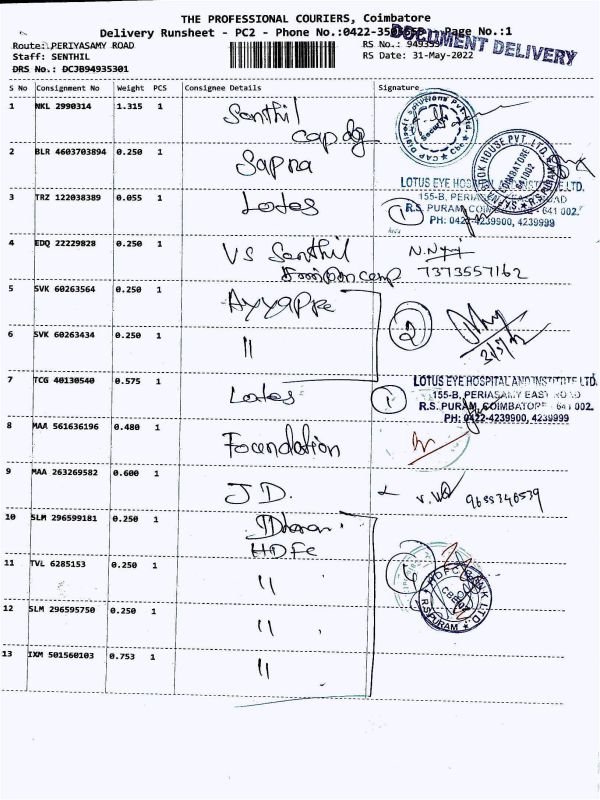 THE PROFESSIONAL COURIERS, Coimbatore
Delivery Runsheet - PC2 - Phone No.:0422-35 Page No.:1
DOCUMENT DELIVERY
Route: PERIYASAMY ROAD
RS No.: 949353
Staff: SENTHIL
RS Date: 31-May-2022
DRS No.: DC3B94935301
S No Consignment No Weight PCS Consignee Details Signature
1 NKL 2990314 1.315 1 Senthil
cap dg
2 BLR 4603703894 0.250 1 Sapna
3 TRZ 122038389 0.055 1 Lotes
LOTUS EYE HOSPITAL LTD.
155-B, PERIASAMY EAST ROAD
R.S. PURAM, COIMBATORE - 641 002.
PH: 0422-4239900, 4239999
1
4 EDQ 22229828 0.250 1 VS Senthil
7373557162
5 SVK 60263564 0.250 1 Ayyappa
2
31/5/22
6 SVK 60263434 0.250 1 "
7 TCG 40130540 0.575 1 Lotes
1
LOTUS EYE HOSPITAL AND INSTITUTE LTD.
155-B, PERIASAMY EAST ROAD
R.S. PURAM, COIMBATORE - 641 002.
PH: 0422-4239900, 4239999
8 MAA 561636196 0.480 1 Foundation
9 MAA 263269582 0.600 1 J D.
9688346539
10 SLM 296599181 0.250 1 Dharani
HDFC
11 TVL 6285153 0.250 1 "
HDFC BANK LTD.
CBE-02
R.S.PURAM
12 SLM 296595750 0.250 1 "
13 IXM 501560103 0.753 1 "